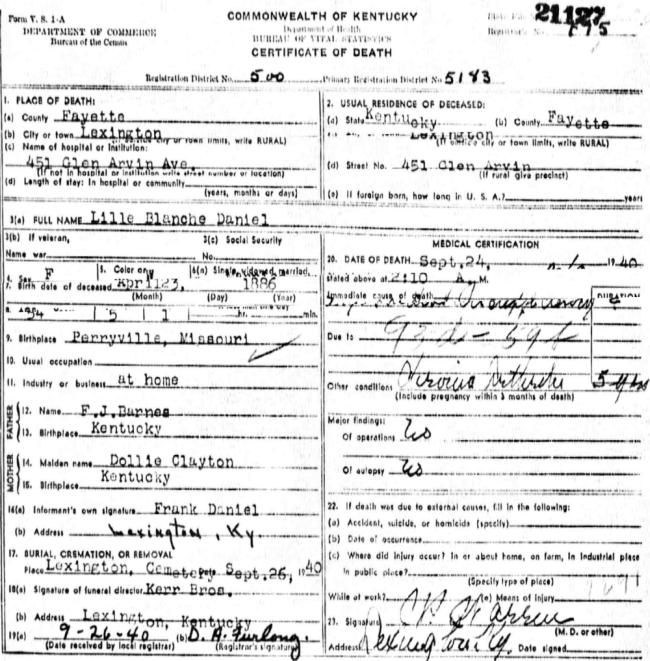 Form V. S. 1-A
DEPARTMENT OF COMMERCE
Bureau of the Census
COMMONWEALTH OF KENTUCKY
Department of Health
BUREAU OF VITAL STATISTICS
CERTIFICATE OF DEATH
21127
Registration District No. 500 Primary Registration District No. 5183
1. PLACE OF DEATH:
(a) County Fayette
(b) City or town Lexington
(If outside city or town limits, write RURAL)
(c) Name of hospital or institution:
451 Glen Arvin Ave.
(If not in hospital or institution write street number or location)
(d) Length of stay: In hospital or community
(years, months or days)
2. USUAL RESIDENCE OF DECEASED:
(a) State Kentucky (b) County Fayette
Lexington
(If outside city or town limits, write RURAL)
(d) Street No. 451 Glen Arvin
(If rural give precinct)
(e) If foreign born, how long in U. S. A.? years
3(a) FULL NAME Lille Blanche Daniel
3(b) If veteran,
Name war
3(c) Social Security
4. Sex F 5. Color or 6(a) Single, widowed, married,
7. Birth date of deceased April 23, 1886
(Month) (Day) (Year)
8. 54 5 1 hr. min.
9. Birthplace Perryville, Missouri
10. Usual occupation
11. Industry or business at home
FATHER
12. Name F.J.Barnes
13. Birthplace Kentucky
MOTHER
14. Maiden name Dollie Clayton
15. Birthplace Kentucky
16(a) Informent's own signature Frank Daniel
(b) Address Lexington, Ky.
17. BURIAL, CREMATION, OR REMOVAL
Place Lexington, Cemetery Date Sept.26, 1940
18(a) Signature of funeral director Kerr Bros.
(b) Address Lexington, Kentucky
19(a) 9-26-40 (b) D. A. Furlong.
(Date received by local registrar) (Registrar's signature)
MEDICAL CERTIFICATION
20. DATE OF DEATH Sept.24, 1940
stated above at 2:10 A.M.
Immediate cause of death
DURATION
Due to
Other conditions
(Include pregnancy within 3 months of death)
Major findings:
Of operations No
Of autopsy No
22. If death was due to external causes, fill in the following:
(a) Accident, suicide, or homicide (specify)
(b) Date of occurrence
(c) Where did injury occur? In or about home, on farm, in industrial place
in public place?
(Specify type of place)
While at work? (e) Means of injury
23. Signature
(M. D. or other)
Address Lexington Ky. Date signed